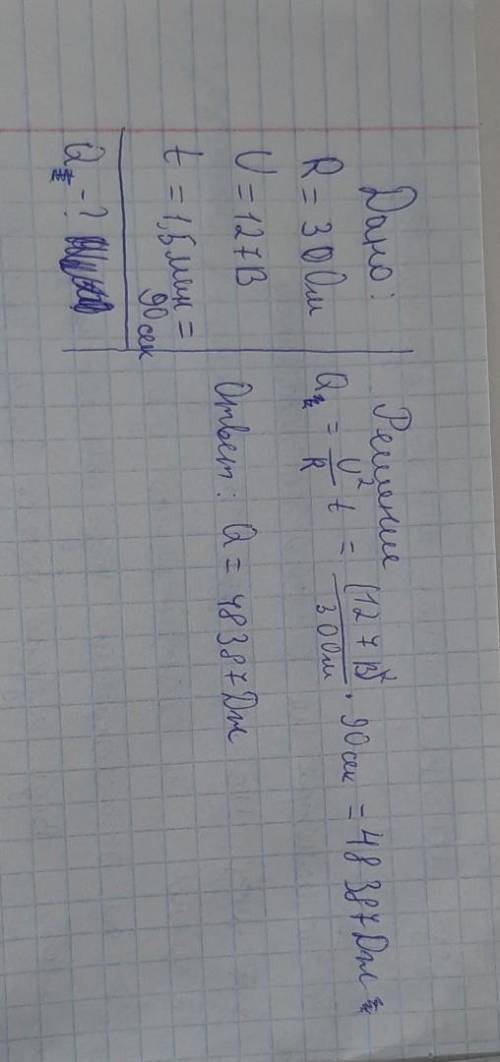 Дано:
R = 30 Ом
U = 127 В
t = 1,5 мин =
90 сек
Q - ?
Решение
Q = U²/R t = (127 В)²/30 Ом · 90 сек = 48387 Дж
Ответ: Q = 48387 Дж